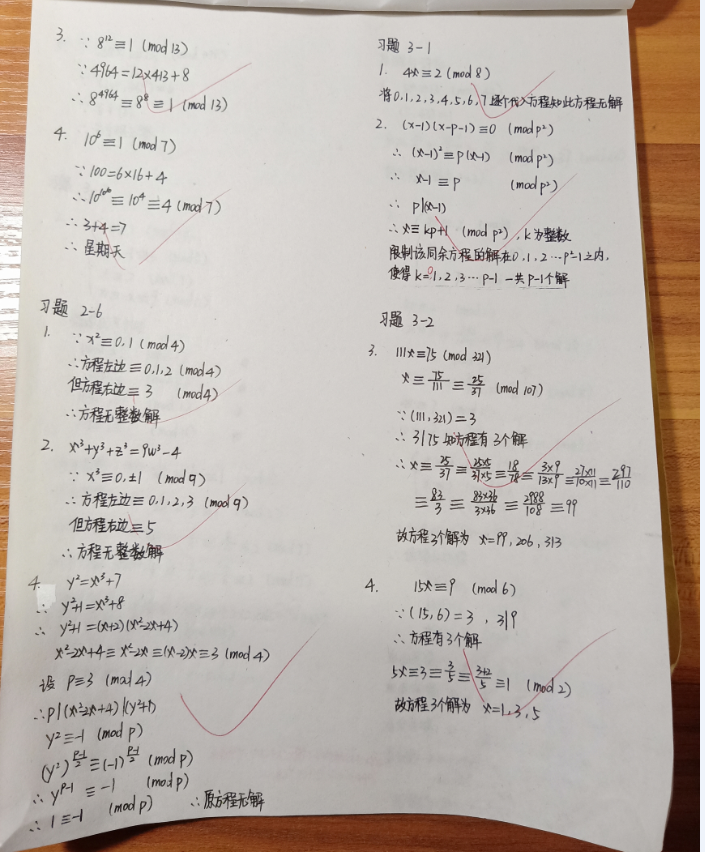 3. ∵ 8¹² ≡ 1 (mod 13)
∵ 4964 = 12×413 + 8
∴ 8⁴⁹⁶⁴ ≡ 8⁸ ≡ 1 (mod 13)
4. 10⁶ ≡ 1 (mod 7)
∵ 100 = 6×16 + 4
∴ 10¹⁰⁰ ≡ 10⁴ ≡ 4 (mod 7)
∴ 3+4=7
∴ 星期天
习题 2-6
1. ∵ x² ≡ 0,1 (mod 4)
∴ 方程左边 ≡ 0,1,2 (mod 4)
但方程右边 ≡ 3 (mod 4)
∴ 方程无整数解
2. x³+y³+z³=9w³-4
∵ x³ ≡ 0,±1 (mod 9)
∴ 方程左边 ≡ 0,1,2,3 (mod 9)
但方程右边 ≡ 5
∴ 方程无整数解
4. y²=x³+7
∴ y²+1=x³+8
∴ y²+1=(x+2)(x²-2x+4)
x²-2x+4 ≡ x²-2x ≡ (x-2)x ≡ 3 (mod 4)
设 p≡3 (mod 4)
∴ p|(x²-2x+4)|(y²+1)
y² ≡ -1 (mod p)
(y²)^((p-1)/2) ≡ (-1)^((p-1)/2) (mod p)
∴ y^(p-1) ≡ -1 (mod p)
∴ 1 ≡ -1 (mod p) ∴ 原方程无解
习题 3-1
1. 4x ≡ 2 (mod 8)
将 0,1,2,3,4,5,6,7 逐个代入方程知此方程无解
2. (x-1)(x-p-1) ≡ 0 (mod p²)
∴ (x-1)² ≡ p(x-1) (mod p²)
∴ x-1 ≡ p (mod p²)
∴ p|(x-1)
∴ x ≡ kp+1 (mod p²), k为整数
限制该同余方程的解在 0,1,2…p²-1之内,
使得 k=0,1,2,3…p-1 一共 p-1个解
习题 3-2
3. 111x ≡ 75 (mod 321)
x ≡ 75/111 ≡ 25/37 (mod 107)
∵ (111, 321) = 3
∴ 3|75 知方程有3个解
∴ x ≡ 25/37 ≡ 25×5/37×5 ≡ 18/78 ≡ 3×9/13×9 ≡ 27×11/10×11 ≡ 297/110
≡ 83/3 ≡ 83×36/3×36 ≡ 2988/108 ≡ 99
故方程3个解为 x=99, 206, 313
4. 15x ≡ 9 (mod 6)
∵ (15, 6) = 3 , 3|9
∴ 方程有3个解
5x ≡ 3 ≡ 3/5 ≡ 3+2/5 ≡ 1 (mod 2)
故方程3个解为 x=1,3,5